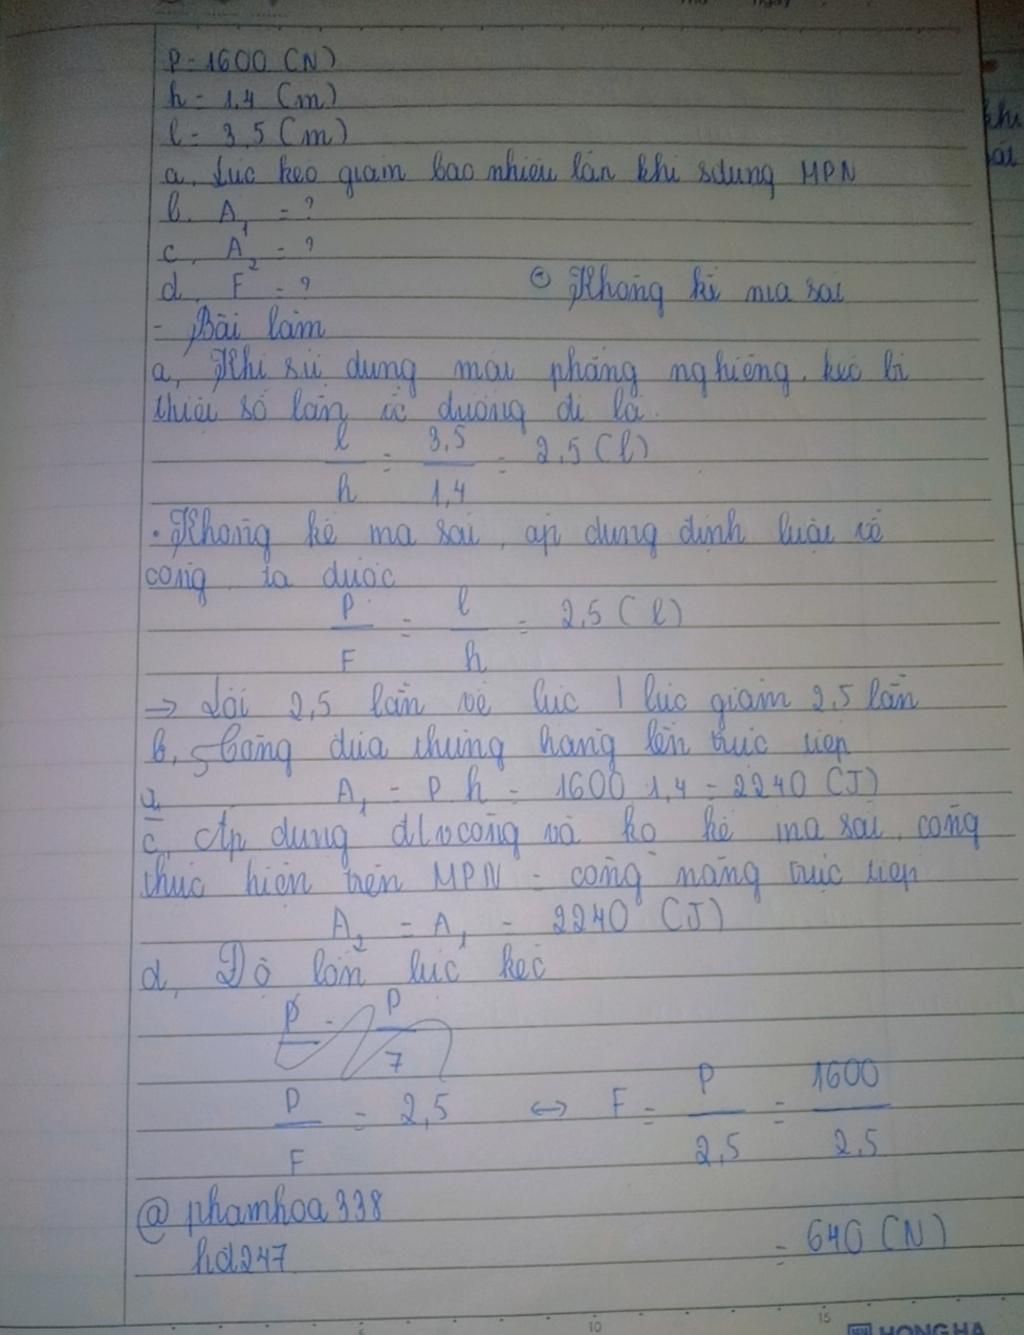 P = 1600 (N)
h = 1,4 (m)
l = 3,5 (m)
a, Lực kéo giảm bao nhiêu lần khi sdụng MPN
b, A₁ = ?
c, A₂ = ?
d, F = ?
Không kể ma sát
- Bài làm
a, Khi sử dụng mặt phẳng nghiêng, kéo bị
thiệt số lần về đường đi là
l/h = 3,5/1,4 = 2,5 (l)
. Không kể ma sát, áp dụng định luật về
công ta được
P/F = l/h = 2,5 (l)
→ Lợi 2,5 lần về lực / lực giảm 2,5 lần
b, Công đưa thùng hàng lên trực tiếp
A₁ = P h = 1600 1,4 = 2240 (J)
c, Áp dụng đl v công và ko kể ma sát, công
thực hiện trên MPN = công nâng trực tiếp
A₂ = A₁ = 2240 (J)
d, Độ lớn lực kéo
P/F = 2,5 ↔ F = P/2,5 = 1600/2,5
@phamhoa338
hd247
= 640 (N)
10
15
HONG HA